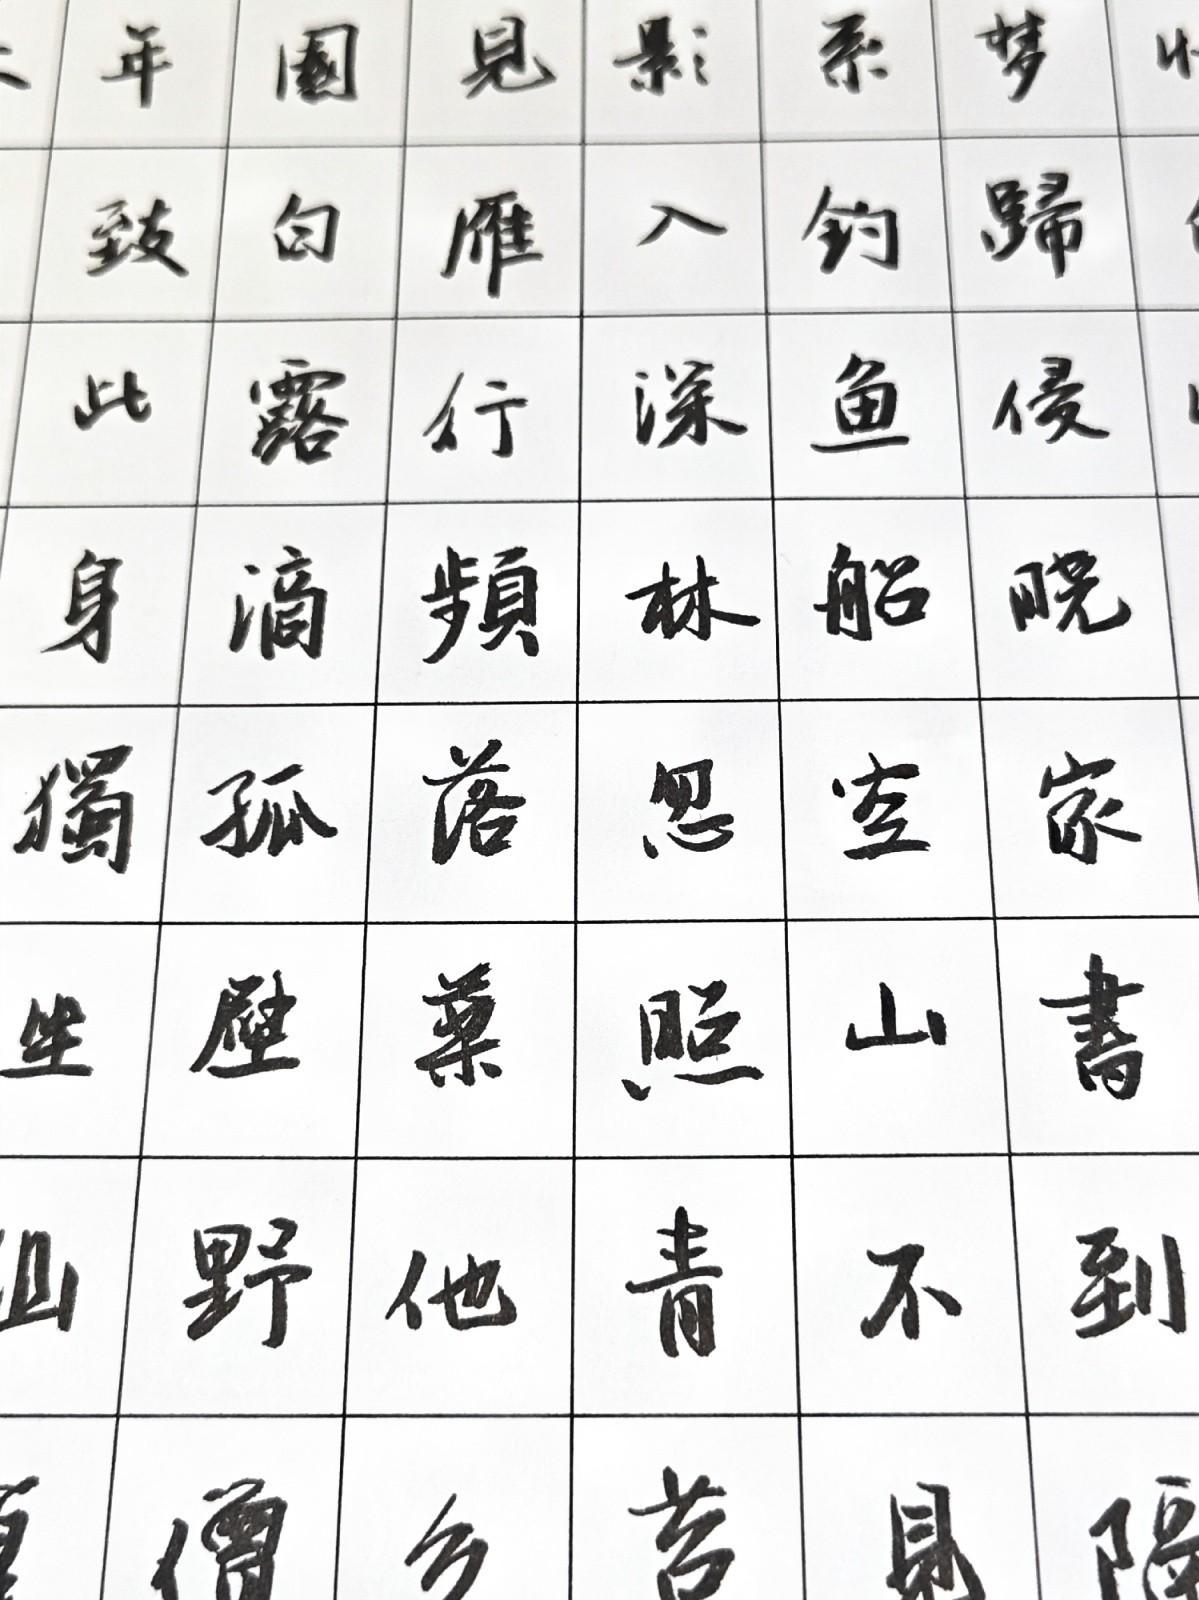 梦歸侵晓家書到隔
系钓鱼船空山不見
影入深林忽照青苔
見雁行頻落葉他乡
園白露滴孤壁野僧
年致此身獨坐幽